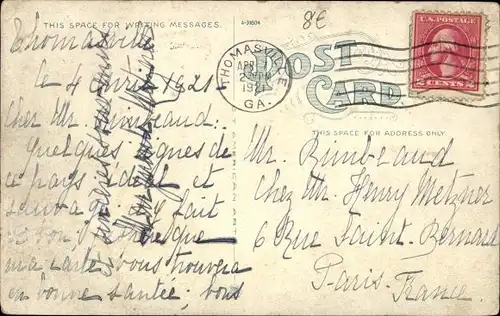 THIS SPACE FOR WRITING MESSAGES.
4-31604
8€
U.S. POSTAGE
2 CENTS 2
THOMASVILLE
APR
1921
GA.
POST
CARD.
THIS SPACE FOR ADDRESS ONLY.
Thomasville
le 4 Avril 1921
Cher Mr. Rimbeaud:
Quelques lignes de
ce pays idéal et
sauvage fait
si bon. J'espère que
ma carte vous trouvera
en bonne santée; vous
Mr. Rimbeaud
Chez Mr. Henry Metzner
6 Rue Saint-Bernard
Paris.
France.